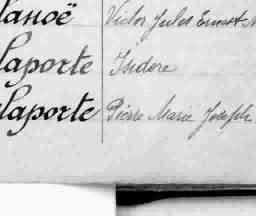 lanoë Victor Jules Ernest
laporte Isidore
laporte Pierre Marie Joseph